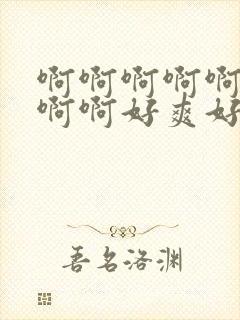 啊啊啊啊啊
啊啊好爽好
吾名洛渊